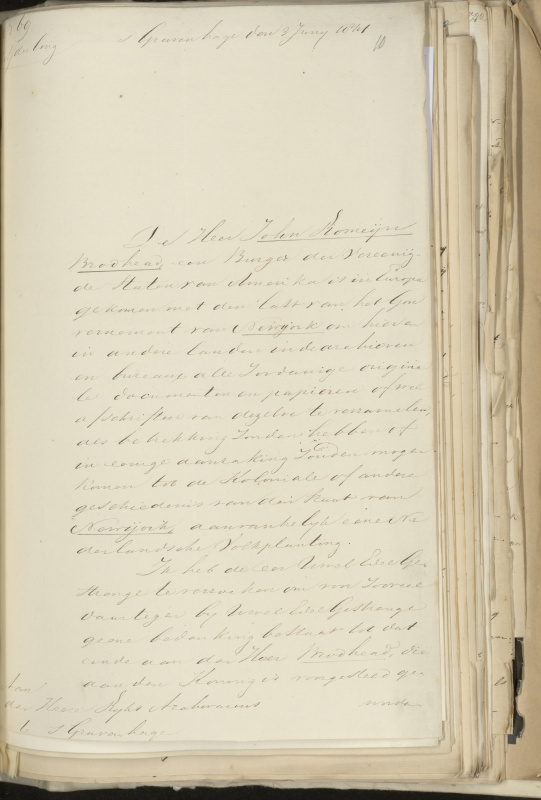 69
's Gravenhage den 8 Juny 1841
10
De Heer John Romeijn
Brodhead, een Burger der Vereenig-
de Staten van Amerika is in Europa
gekomen met den last van het Gou
vernement van Newyork om hier en
in andere landen in de archieven
en bureaux alle zoodanige origine
le documenten en papieren ofwel
afschriften van dezelve te verzamelen,
als betrekking zouden hebben of
in eenige aanraking zouden mogen
komen tot de Koloniale of andere
geschiedenis van den staat van
Newyork, aanvankelijk eene Ne
derlandsche Volkplanting.
Ik heb de eer UwelEdelGe-
strenge te verzoeken om voor zooveel
daartegen by UwelEdelGestrenge
geene bedenking bestaat tot dat
einde aan den Heer Brodhead, die
aan den Koning is voorgesteld ge
worden
Aan
den Heere Ryks Archivarius
's Gravenhage